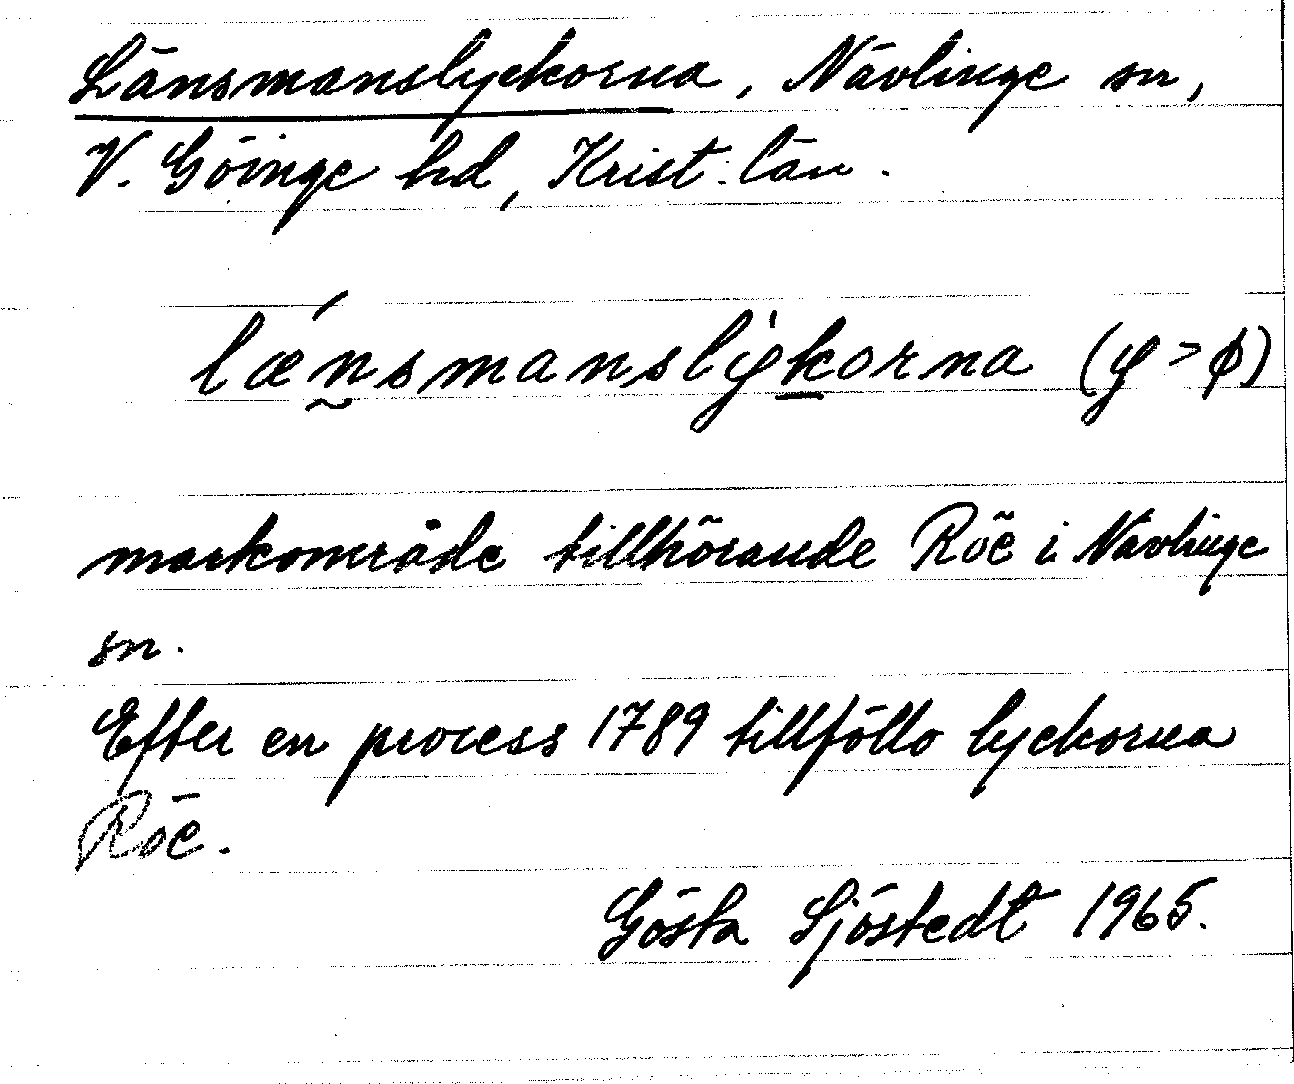 Länsmanslyckorna, Nävlinge sn,
V. Göinge hd, Krist. län.
lænsmanslykorna (y > ø)
markområde tillhörande Röe i Nävlinge
sn.
Efter en process 1789 tillföllo lyckorna
Röe.
Gösta Sjöstedt 1965.